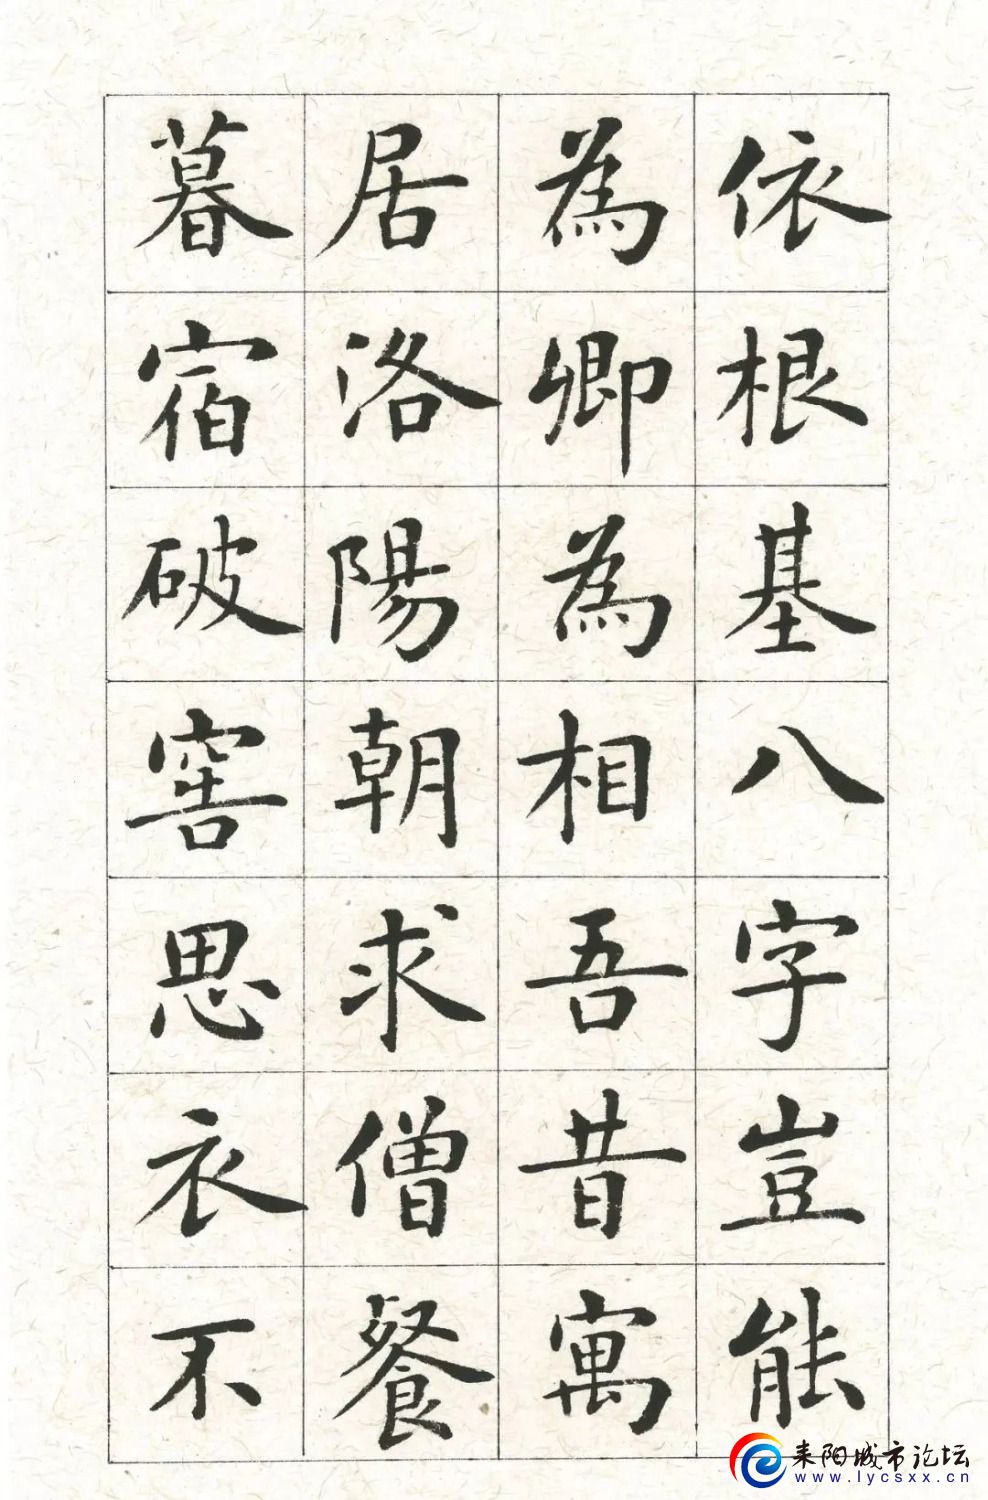 依根基八字豈能
為卿為相吾昔寓
居洛陽朝求僧餐
暮宿破窖思衣不
耒阳城市论坛
www.lycsxx.cn